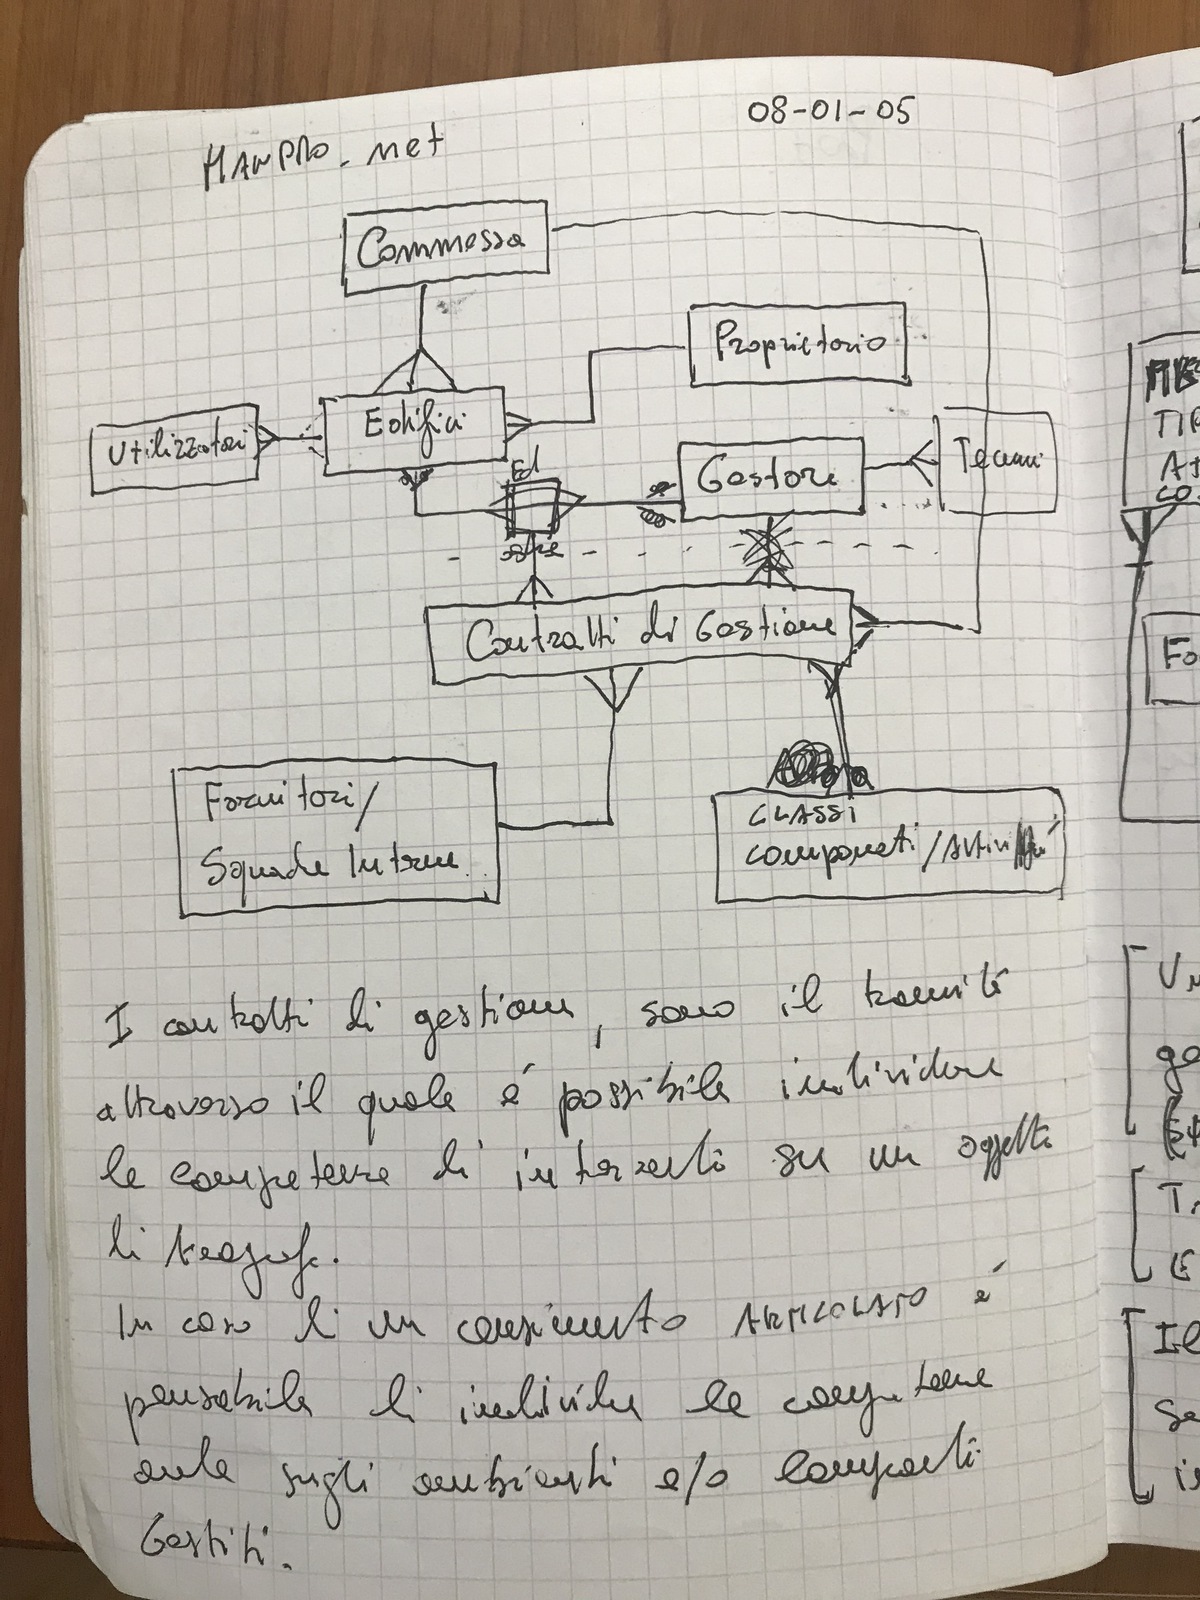 08-01-05
MANPRO.net
Commessa
Proprietario
Utilizzatori
Edifici
Gestori
Tecnici
Ed
Contratti di Gestione
Fornitori/
Squadre Interne
CLASSI
componenti/Attività
I contratti di gestione, sono il tramite
attraverso il quale é possibile individuare
le competenze di interventi su un oggetto
di
In caso di un censimento ARTICOLATO é
pensabile di individuare le competenze
anche sugli ambienti e/o componenti
Gestiti.
TI
A
CO
Fo
U
ge
T
E
Il
Se
i